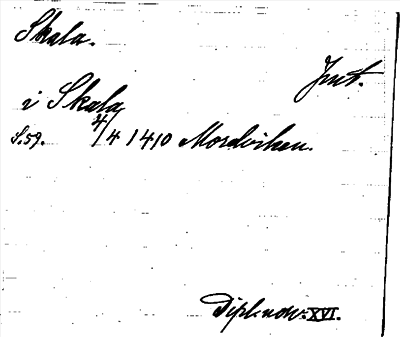 Skala.
Jmt.
i Skala
S. 59. 4/4 1410 Mordviken.
Dipl. norv. XVI.